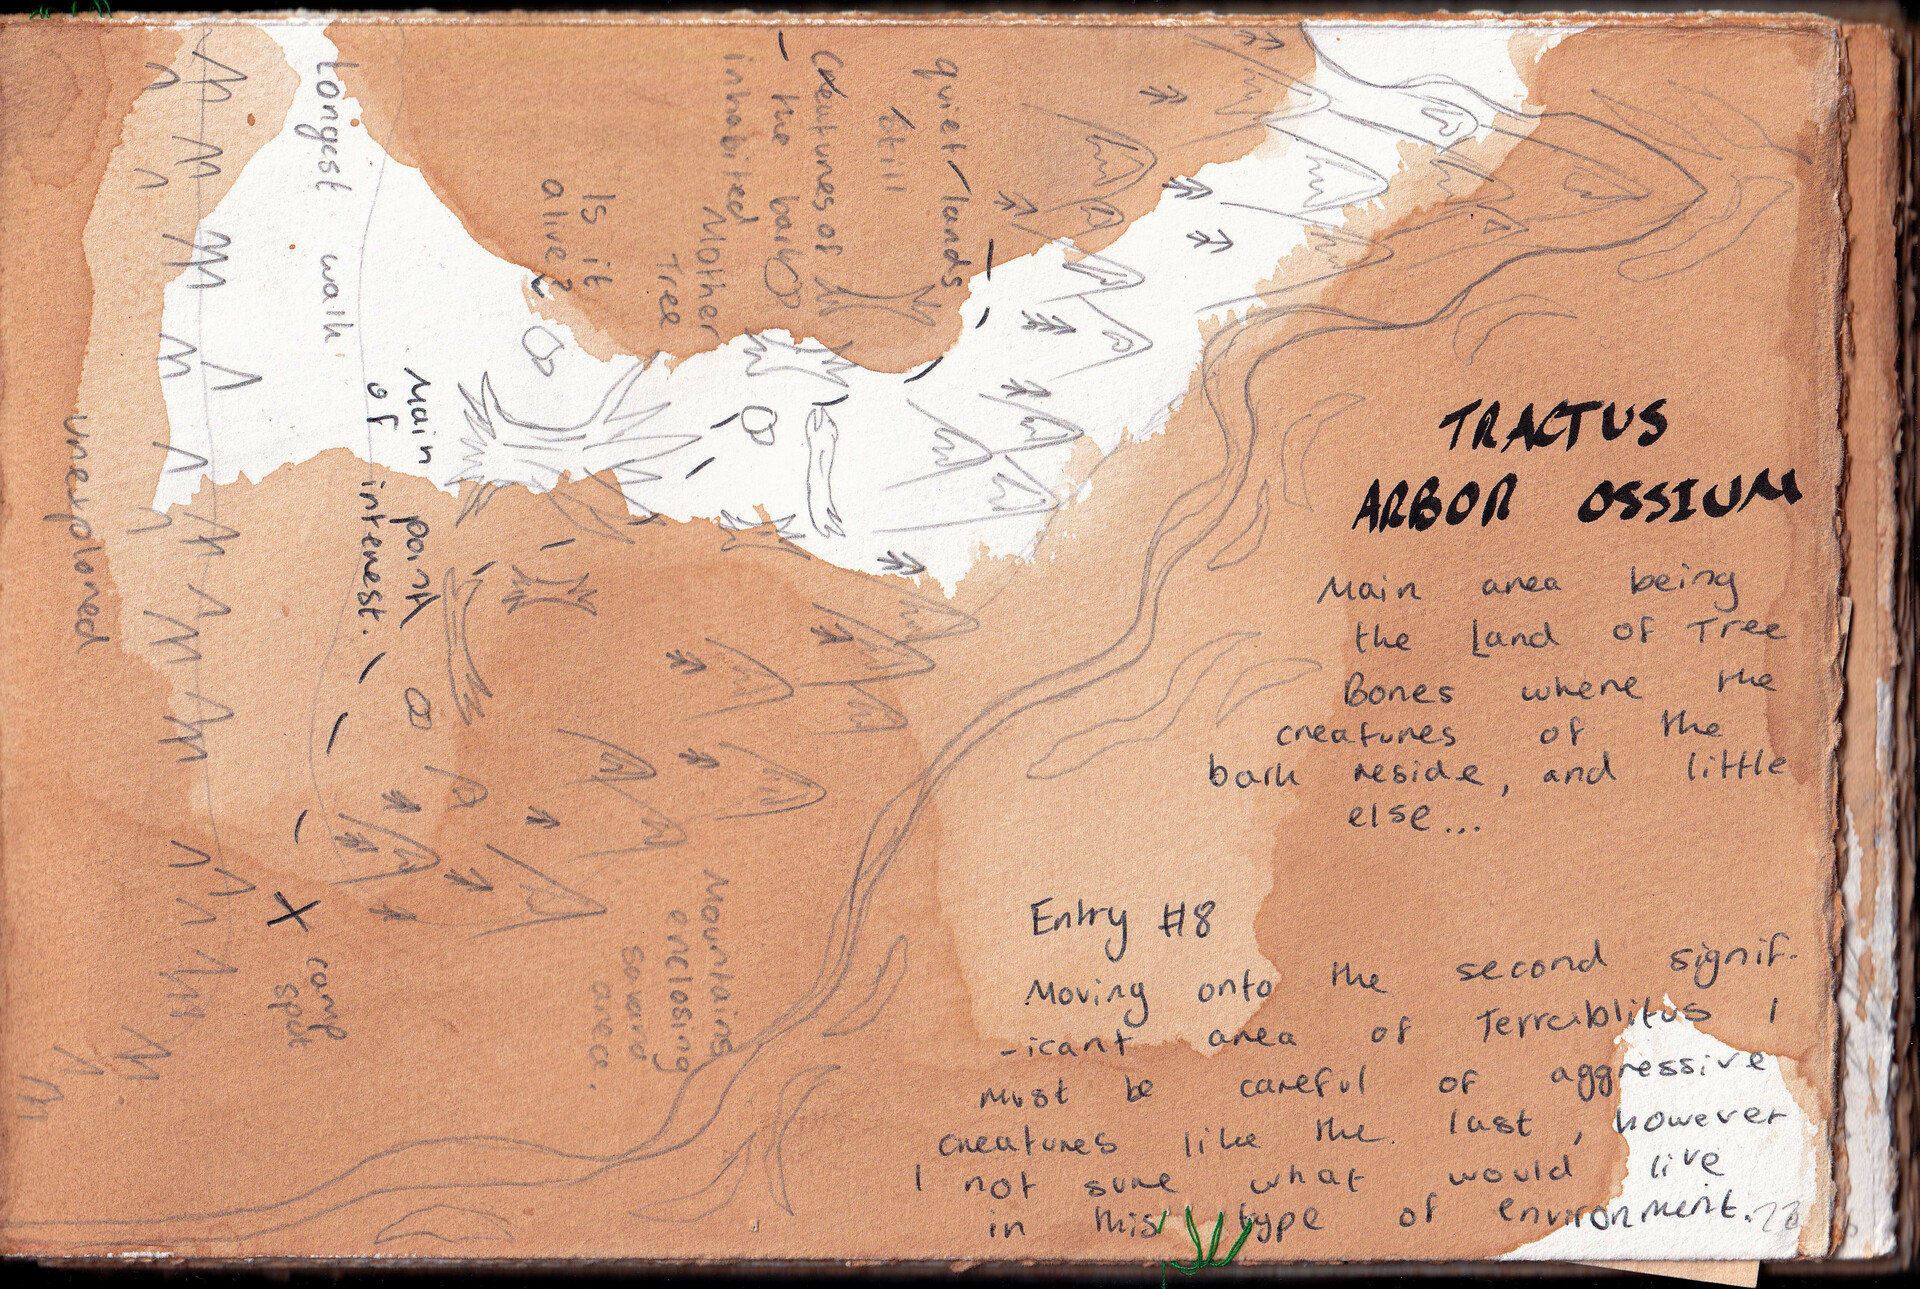 TRACTUS
ARBOR OSSIUM
Main area being
the Land of Tree
Bones where the
creatures of the
bark reside, and little
else...
Entry #8
Moving onto the second signif-
-icant area of Terrablitus I
must be careful of aggressive
creatures like the last, however
I not sure what would live
in this type of environment.
quiet/lands
still
creatures of
- the bark
inhabited
Mother
Tree
Is it
alive?
Longest walk
Main point
of interest.
unexplored
camp
spot
Mountains
enclosing
area.